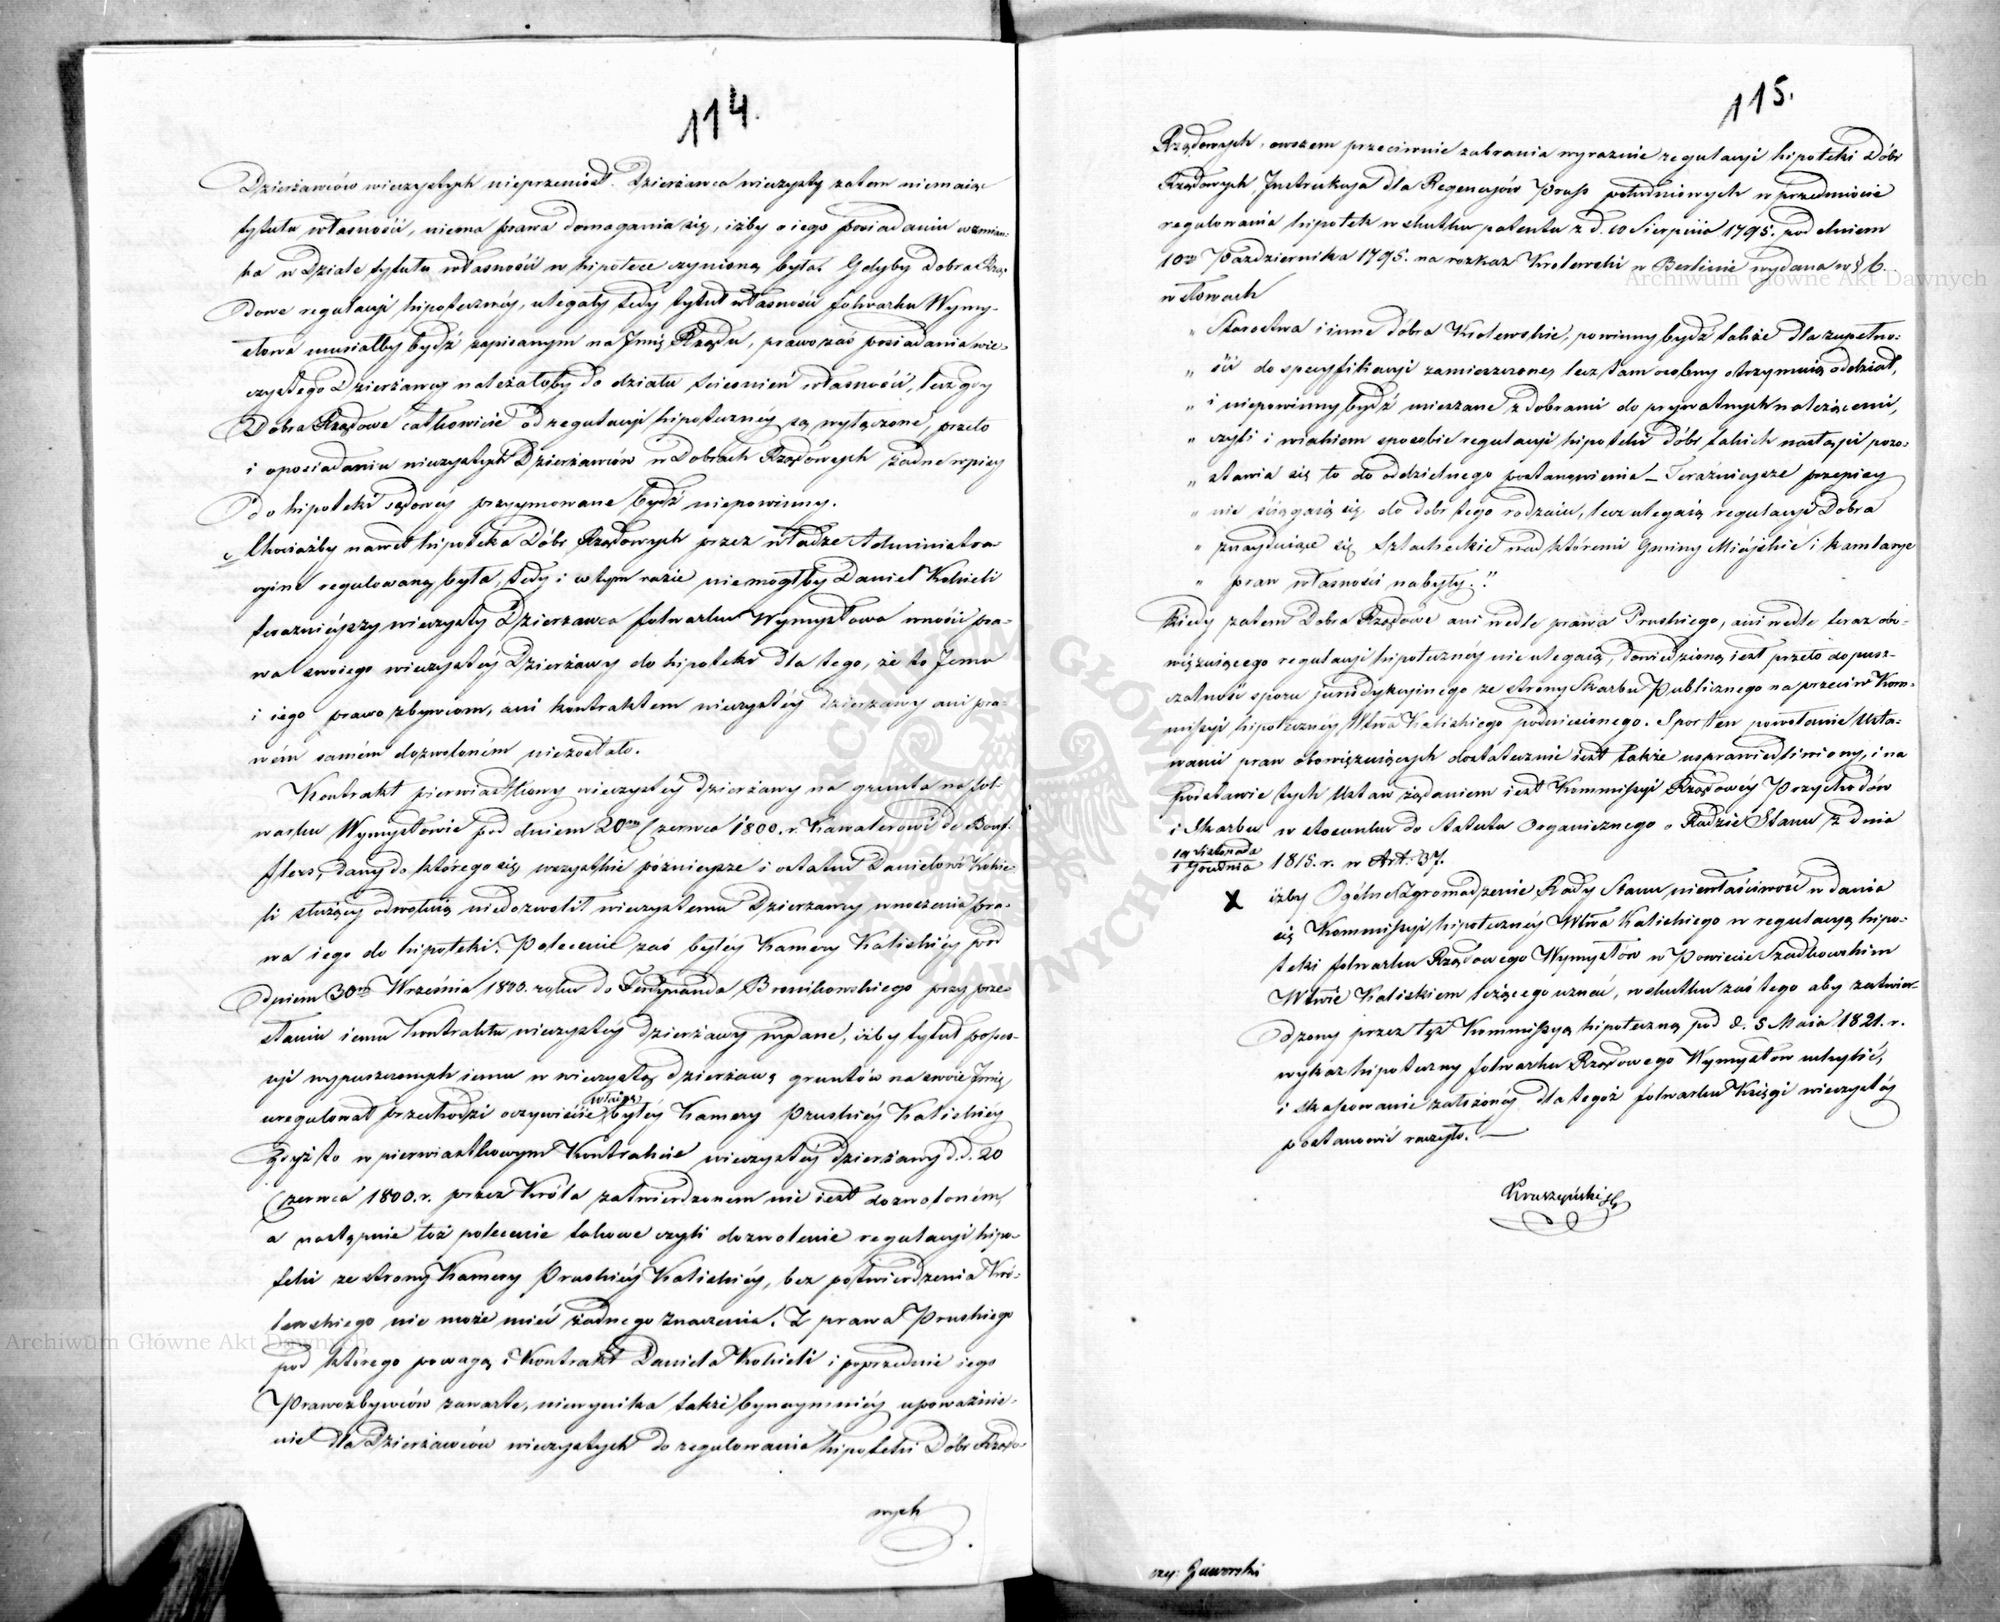 114.
Dzierżawców wieczystych nieprzeniósł. Dzierżawca wieczysty zatem niemaiąc
tytułu własności, niema prawa domagania się, iżby o iego posiadaniu wzmian-
ka w Dziale tytułu własności w hipotece czynioną była. Gdyby Dobra Rzą-
dowe regulacyi hipotecznéj, ulegały tedy tytuł własności folwarku Wymy-
słowa musiałby bydź zapisanym na Imię Rządu, prawo zaś posiadania wie-
czystego Dzierżawcy należałoby do działu ścieśnień własności, lecz gdy
Dobra Rządowe całkowicie od regulacyi hipotecznéj są wyłączone, przeto
i o posiadaniu wieczystych Dzierżawców w Dobrach Rządowych żadne wpisy
do hipoteki sądowey przyymowane bydź niepowinny.
Chociażby nawet hipoteka Dóbr Rządowych przez władze Administra-
cyine regulowaną była, tedy i w tym razie niemógłby Daniel Kokieli
teraznieyszy wieczysty Dzierżawca folwarku Wymysłowa wnosić pra-
wa swoiego wieczystéj Dzierżawy do hipoteki dla tego, że to Jemu
i iego prawo zbywcom, ani kontraktem wieczystéj dzierżawy ani pra-
wém samém dozwoloném niezostało.
Kontrakt pierwiastkowy wieczystéj dzierżawy na grunta na fol-
warku Wymysłowie pod dniem 20m Czerwca 1800. r. Kawalerowi de Bouf-
flers, dany do którego się wszystkie późnieysze i ostatni Danielowi Kokie-
li służący odwołuią niedozwolił wieczystemu Dzierżawcy wnoszenia pra-
wa iego do hipoteki. Polecenie zaś byłéj Kamery Kaliskiéj pod
dniem 30m Września 1803. roku do Ferdynanda Bronikowskiego przy prze-
słaniu iemu Kontraktu wieczystéj dzierżawy wydane, iżby tytuł posses-
syi wypuszczonych iemu w wieczystą dzierżawę gruntów na swóie Imię
uregulował przechodzi oczywiście władzę byłéj Kamery Pruskiéj Kaliskiéj
gdyż to w pierwiastkowym Kontrakcie wieczystéj dzierżawy d. d. 20
Czerwca 1800. r. przez Króla zatwierdzonem nie iest dozwoloném,
a następnie też polecenie takowe czyli dozwolenie regulacyi hipo-
teki ze strony Kamery Pruskiéj Kaliskiéj, bez potwierdzenia Kró-
lewskiego nie może mieć żadnego znaczenia. Z prawa Pruskiego
pod którego powagą i Kontrakt Daniela Kokieli i poprzednie iego
Prawozbywców zawarte, niewynika także bynaymniéj upoważnie-
nie dla Dzierżawców wieczystych do regulowania hipoteki Dóbr Rządo-
wych
115.
Rządowych, owszem przeciwnie zabrania wyraznie regulacyi hipoteki Dóbr
Rządowych Instrukcya dla Regencyów Pruss południowych w przedmiocie
regulowania hipotek w skutku patentu z d. 10 Sierpnia 1795. pod dniem
10m Października 1795. na rozkaz Królewski w Berlinie wydana w § 6.
w słowach
„ Starostwa i inne dobra Królewskie, powinny bydź także dla zupełno-
„ ści do specyfikacyi zamieszczone, lecz tam osobny otrzymuią oddział,
„ i niepowinny bydź mieszane z dobrami do prywatnych należącemi,
„ czyli i w iakiem sposobie regulacyi hipoteki dóbr takich nastąpi pozo-
„ stawia się to do oddzielnego postanowienia – Teraźnieysze przepisy
„ nie ściągaią się do dóbr tego rodzaiu, lecz ulegaią regulacyi Dobra
„ znayduiące się Szlacheckie nad któremi Gminy Mieyskie i kamlarye
„ praw własności nabyły."
Kiedy zatem Dobra Rządowe ani wedle prawa Pruskiego, ani wedle teraz obo-
wiązuiącego regulacyi hipotecznéj nieulegaią, dowiedzioną iest przeto dopusz-
czalność sporu jurisdykcyinego ze strony Skarbu Publicznego na przeciw Kom-
missyi hipotecznéj Wtwa Kaliskiego podniesionego. Spor ten powołanie Usta-
wami praw obowiązuiących dostatecznie iest także usprawiedliwiony, i na
podstawie tych Ustaw żądaniem iest Kommissyi Rządowéj Przychodów
i Skarbu w stosunku do Statutu Organicznego o Radzie Stanu z dnia
19 Listopada
1 Grudnia 1815. r. w Art: 37.
X iżby Ogólne Zgromadzenie Rady Stanu niewłaściwość wdania
się Kommissyi hipotecznéj Wtwa Kaliskiego w regulacyą hipo-
teki folwarku Rządowego Wymysłów w Powiecie Szadkowskim
Wtwie Kaliskiem leżącego uznać, w skutku zaś tego aby zatwier-
dzony przez tęż Kommissyą hipoteczną pod d. 5 Maia 1821. r.
wykaz hipoteczny folwarku Rządowego Wymysłów uchylić,
i skassowanie założonéj dla tegoż folwarku Księgi wieczystéj
postanowić raczyło. —
Kruszyński
czy: Gaworski
Archiwum Główne Akt Dawnych
Archiwum Główne Akt Dawnych
ARCHIWUM GŁÓWNE AKT DAWNYCH